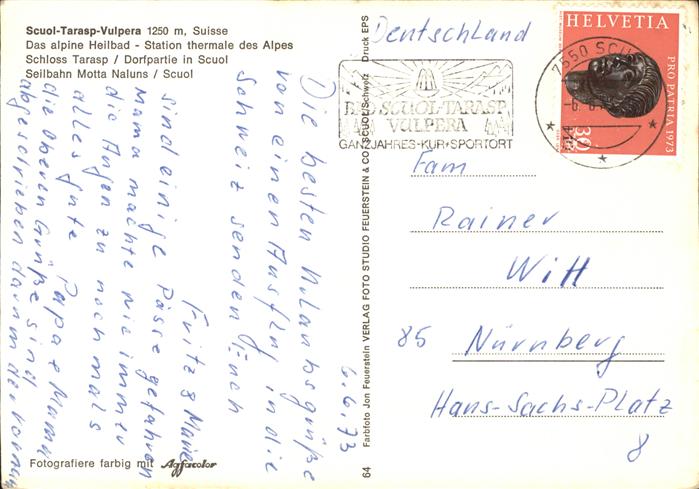 Scuol-Tarasp-Vulpera 1250 m, Suisse
Das alpine Heilbad - Station thermale des Alpes
Schloss Tarasp / Dorfpartie in Scuol
Seilbahn Motta Naluns / Scuol
6.6.73
Die besten Urlaubsgrüße
von einen Ausflug in die
Schweiz senden Euch
Fritz & Marie
sind einige Pässe gefahren
Mama machte wie immer
die Augen zu nochmals
alles gute Papa & Mama
die oberen Grüße sind
abgeschrieben darum der
Fotografiere farbig mit Agfacolor
64 Farbfoto Jon Feuerstein VERLAG FOTO STUDIO FEUERSTEIN & CO., SCUOL/Schweiz Druck EPS
Deutschland
BAD SCUOL-TARASP
VULPERA
GANZJAHRES-KUR+SPORTORT
7550 SCUOL
HELVETIA
PRO PATRIA 1973
30
Fam
Rainer
Witt
85 Nürnberg
Hans-Sachs-Platz
8